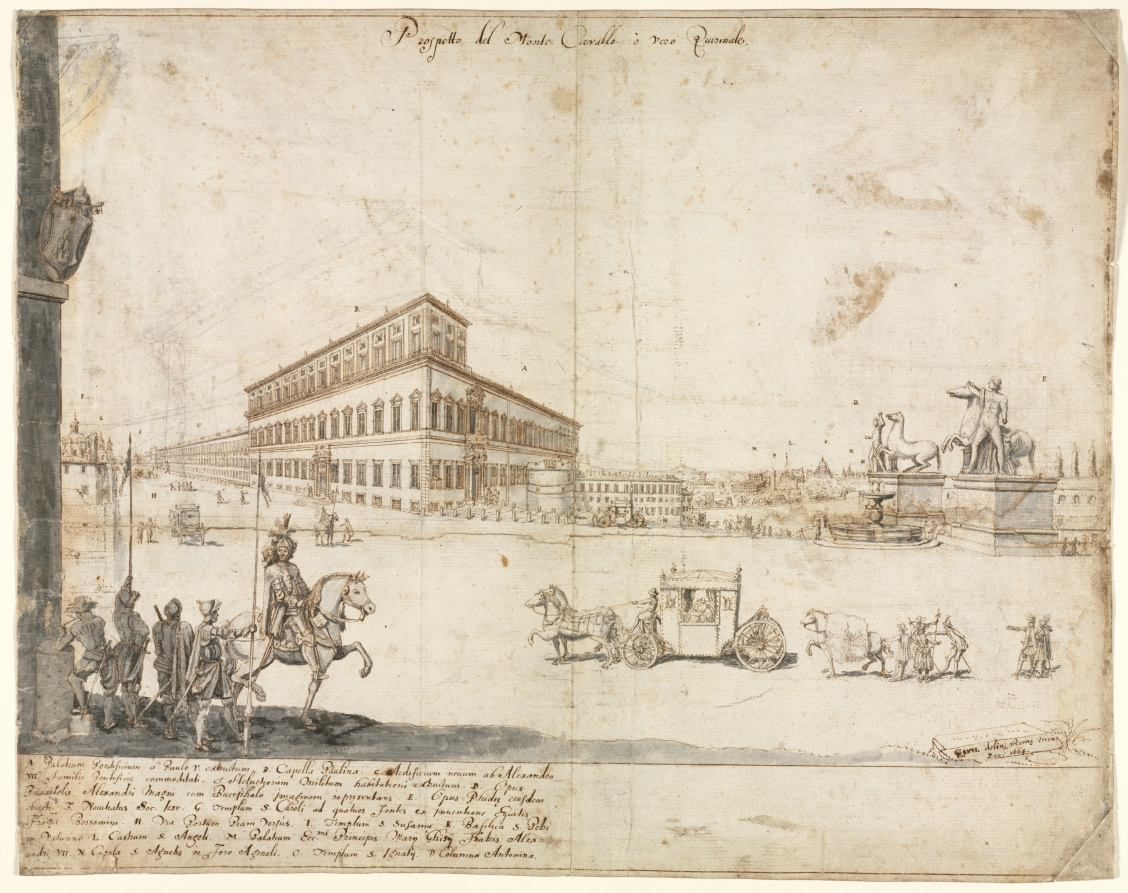 Prospetto del Monte Cavallo ò vero Quirinale.
B
A
E
F
G
C
D
H
I
M P L N
A Palatium Pontificium à Paulo V. exstructum, B. Capella Paulina. C. Aedificium novum ab Alexandro
VII. familiæ Pontificiæ commoditati, & Heluetiorum Militum habitationi exstructum. D. Opus
Praxitelis Alexandri Magni cum Bucephalo imaginem repræsentans. E. Opus Phidiæ eiusdem
F. Novitiatus Soc. G Templum S. Caroli ad quatuor Fontes ex inventione Equitis
Borromini. H. Via Portam Piam versus. I. Templum S. Susannæ. K Basilica S. Petri
in Vaticano L. Castrum S. Angeli. M. Palatium Principis Mary Ghisy Fratris Alex-
andri VII. N. Cupola S. Agnetis in Foro Agonali. O Templum S. Ignatij. P Columna Antonina.
delin. Romæ